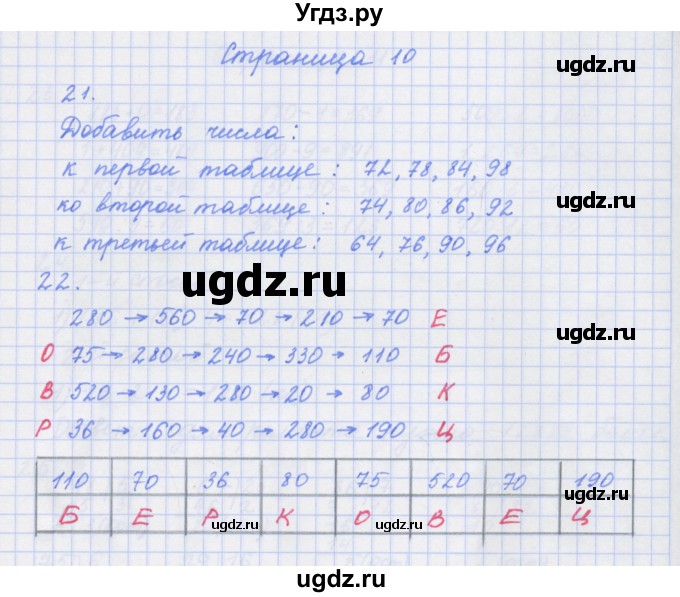 Угдз.ру
Страница 10
ugdz.ru
21.
Добавить числа:
к первой таблице: 72, 78, 84, 98
ко второй таблице: 74, 80, 86, 92
ugdz.ru
к третьей таблице: 64, 76, 90, 96
22.
ugdz.ru
280 → 560 → 70 → 210 → 70 Е
ugdz.ru
О 75 → 280 → 240 → 330 → 110 Б
В 520 → 130 → 280 → 20 → 80 К
Р 36 → 160 → 40 → 280 → 190 Ц
110 70 36 80 75 520 70 190
ugdz.ru
Б Е Р К О В Е Ц
ugdz.ru ugdz.ru
ugdz.ru